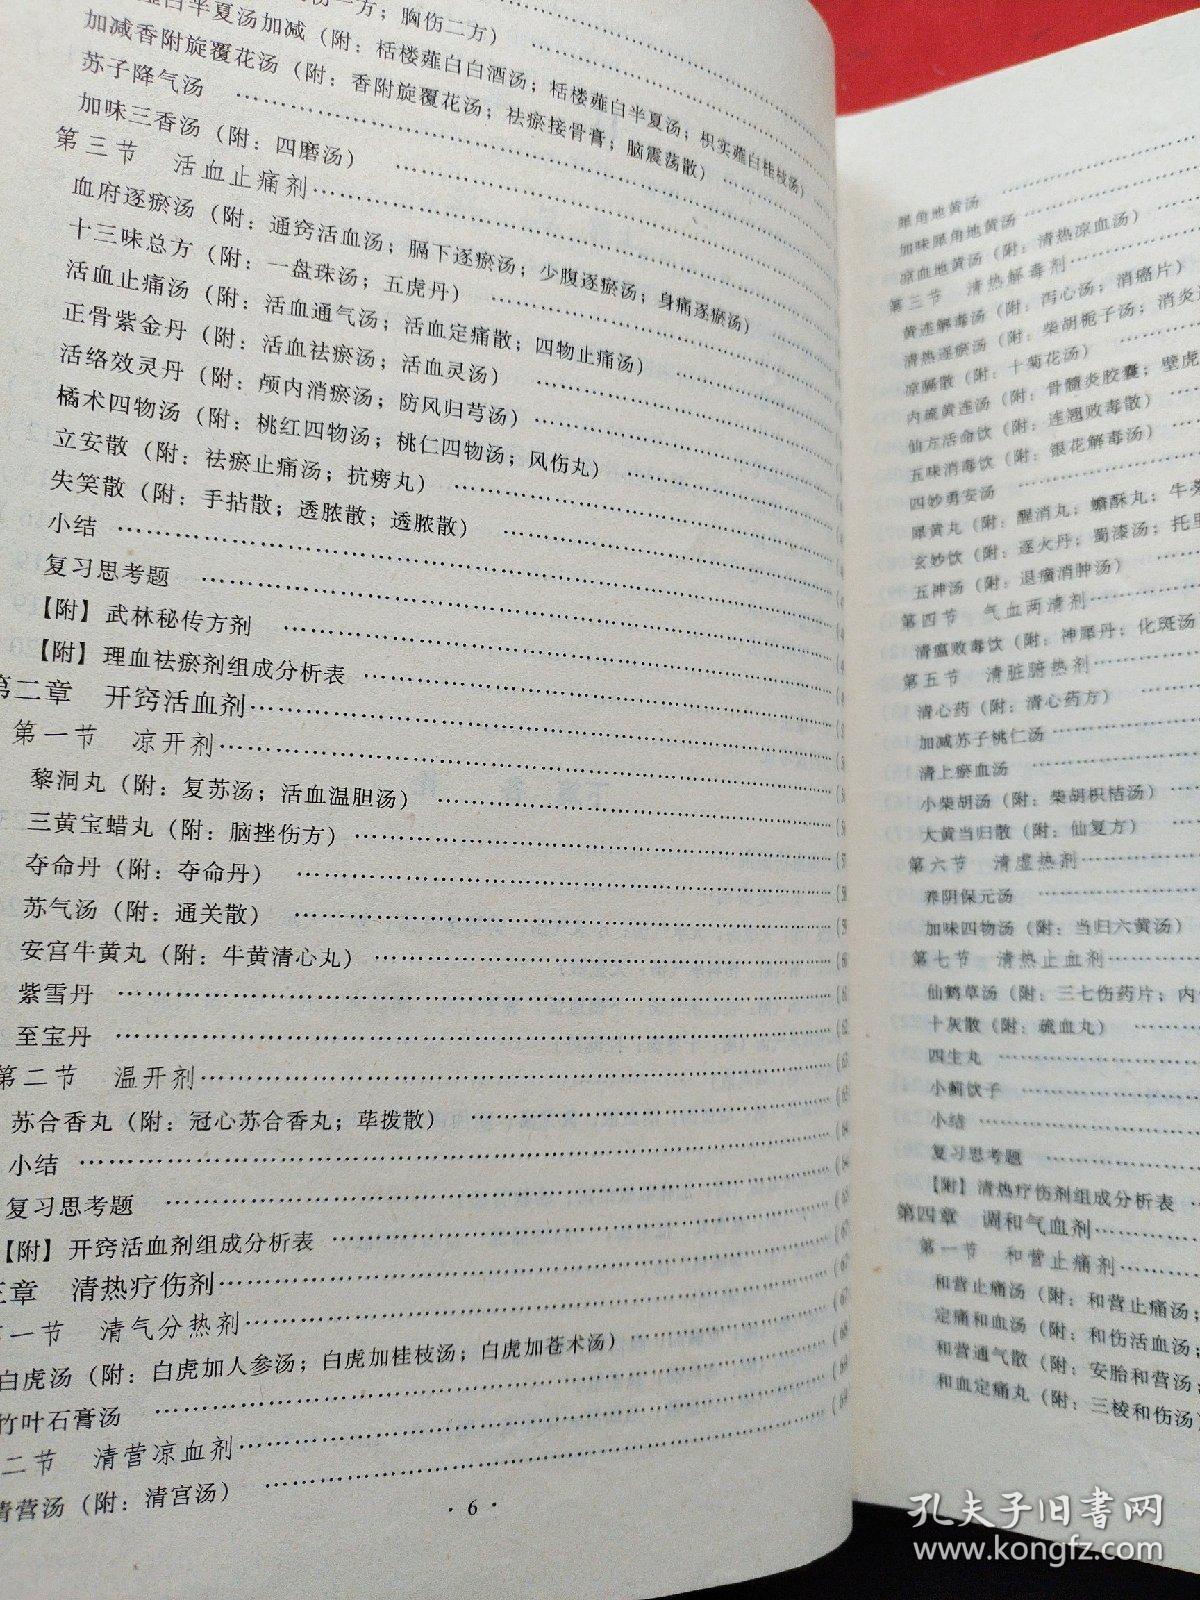 伤一方；胸伤二方）
薤白半夏汤加减（附：栝楼薤白白酒汤；栝楼薤白半夏汤；枳实薤白桂枝汤）
加减香附旋覆花汤（附：香附旋覆花汤；祛瘀接骨膏；脑震荡散）
苏子降气汤
加味三香汤（附：四磨汤）
第三节 活血止痛剂
血府逐瘀汤（附：通窍活血汤；膈下逐瘀汤；少腹逐瘀汤；身痛逐瘀汤）
十三味总方（附：一盘珠汤；五虎丹）
活血止痛汤（附：活血通气汤；活血定痛散；四物止痛汤）
正骨紫金丹（附：活血祛瘀汤；活血灵汤）
活络效灵丹（附：颅内消瘀汤；防风归芎汤）
橘术四物汤（附：桃红四物汤；桃仁四物汤；风伤丸）
立安散（附：祛瘀止痛汤；抗痨丸）
失笑散（附：手拈散；透脓散；透脓散）
小结
复习思考题
【附】武林秘传方剂
【附】理血祛瘀剂组成分析表
第二章 开窍活血剂
第一节 凉开剂
黎洞丸（附：复苏汤；活血温胆汤）
三黄宝蜡丸（附：脑挫伤方）
夺命丹（附：夺命丹）
苏气汤（附：通关散）
安宫牛黄丸（附：牛黄清心丸）
紫雪丹
至宝丹
第二节 温开剂
苏合香丸（附：冠心苏合香丸；荜拨散）
小结
复习思考题
【附】开窍活血剂组成分析表
三章 清热疗伤剂
一节 清气分热剂
白虎汤（附：白虎加人参汤；白虎加桂枝汤；白虎加苍术汤）
竹叶石膏汤
二节 清营凉血剂
清营汤（附：清宫汤）
· 6 ·
犀角地黄汤
加味犀角地黄汤
凉血地黄汤（附：清热凉血汤）
第三节 清热解毒剂
黄连解毒汤（附：泻心汤；消癌片）
清热逐瘀汤（附：柴胡栀子汤；消炎
凉膈散（附：十菊花汤）
内疏黄连汤（附：骨髓炎胶囊；壁虎
仙方活命饮（附：连翘败毒散）
五味消毒饮（附：银花解毒汤）
四妙勇安汤
犀黄丸（附：醒消丸；蟾酥丸；牛蒡
玄妙饮（附：逐火丹；蜀漆汤；托里
五神汤（附：退癀消肿汤）
第四节 气血两清剂
清瘟败毒饮（附：神犀丹；化斑汤
第五节 清脏腑热剂
清心药（附：清心药方）
加减苏子桃仁汤
清上瘀血汤
小柴胡汤（附：柴胡枳桔汤）
大黄当归散（附：仙复方）
第六节 清虚热剂
养阴保元汤
加味四物汤（附：当归六黄汤）
第七节 清热止血剂
仙鹤草汤（附：三七伤药片；内
十灰散（附：硫血丸）
四生丸
小蓟饮子
小结
复习思考题
【附】清热疗伤剂组成分析表
第四章 调和气血剂
第一节 和营止痛剂
和营止痛汤（附：和营止痛汤；
定痛和血汤（附：和伤活血汤；
和营通气散（附：安胎和营汤；
和血定痛丸（附：三棱和伤汤）
孔夫子旧书网
www.kongfz.com